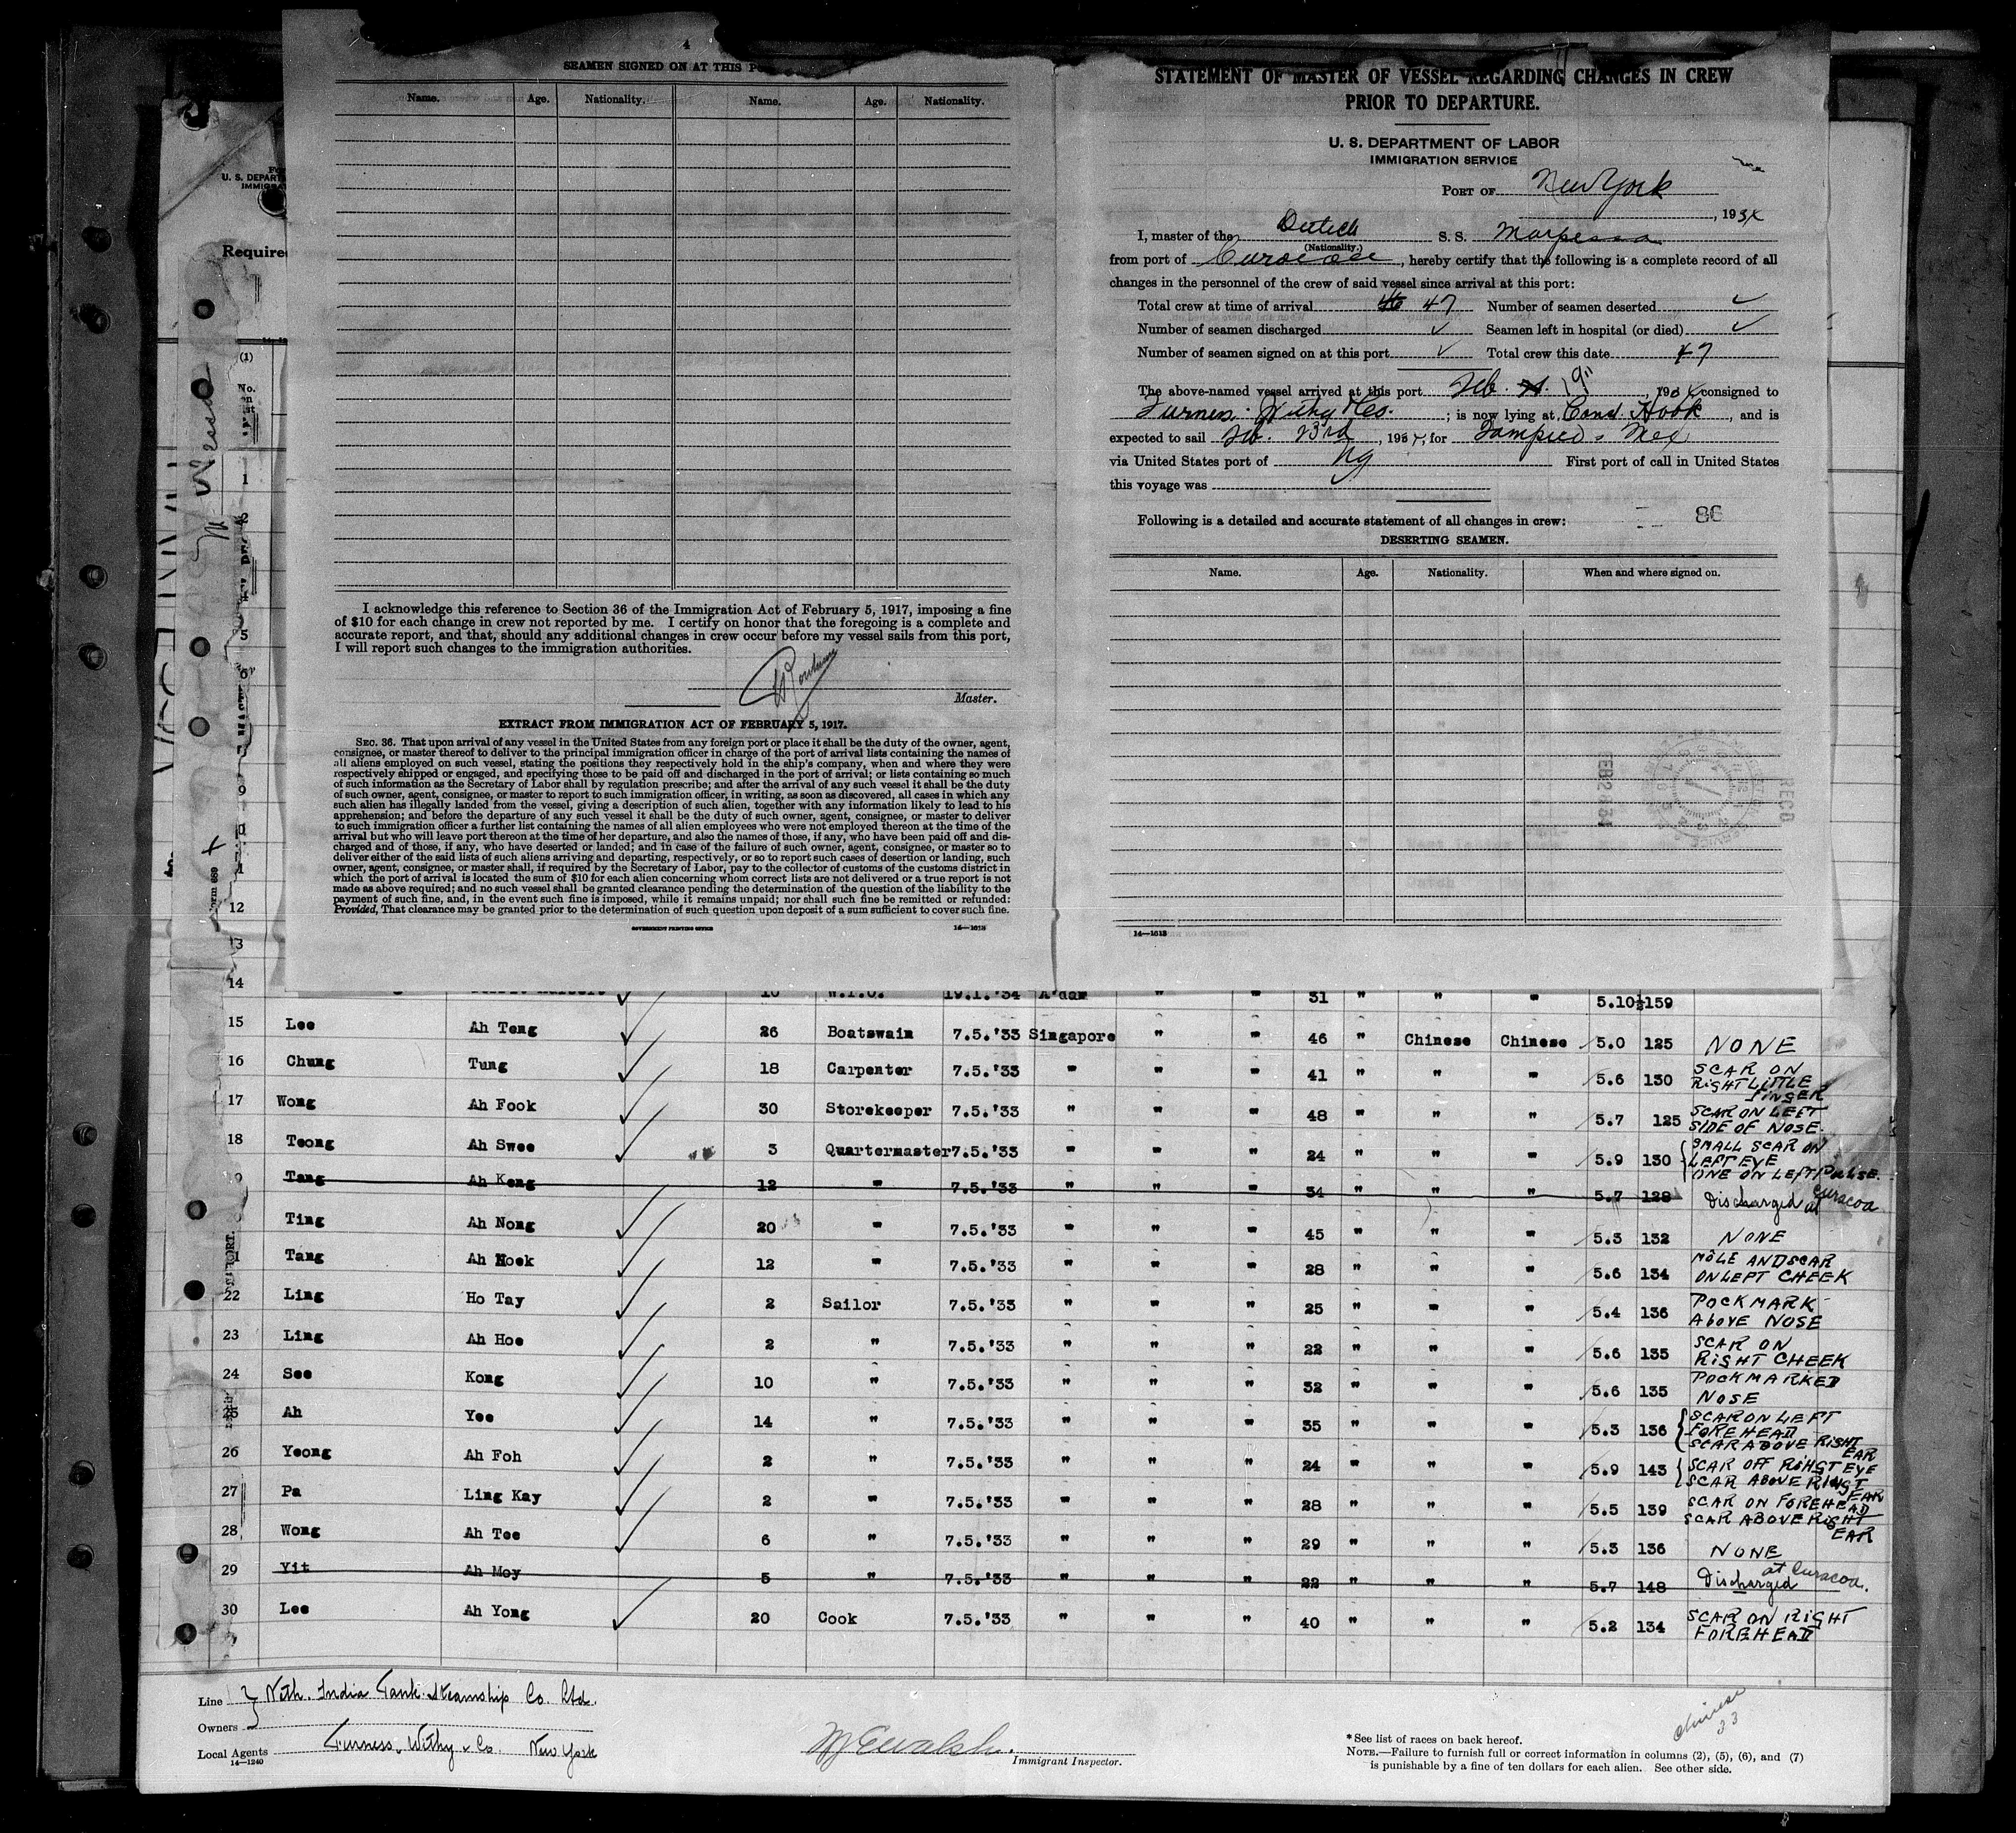 4
SEAMEN SIGNED ON AT THIS P
Name. Age. Nationality. Name. Age. Nationality.
I acknowledge this reference to Section 36 of the Immigration Act of February 5, 1917, imposing a fine
of $10 for each change in crew not reported by me. I certify on honor that the foregoing is a complete and
accurate report, and that, should any additional changes in crew occur before my vessel sails from this port,
I will report such changes to the immigration authorities.
Master.
EXTRACT FROM IMMIGRATION ACT OF FEBRUARY 5, 1917.
SEC. 36. That upon arrival of any vessel in the United States from any foreign port or place it shall be the duty of the owner, agent,
consignee, or master thereof to deliver to the principal immigration officer in charge of the port of arrival lists containing the names of
all aliens employed on such vessel, stating the positions they respectively hold in the ship's company, when and where they were
respectively shipped or engaged, and specifying those to be paid off and discharged in the port of arrival; or lists containing so much
of such information as the Secretary of Labor shall by regulation prescribe; and after the arrival of any such vessel it shall be the duty
of such owner, agent, consignee, or master to report to such immigration officer, in writing, as soon as discovered, all cases in which any
such alien has illegally landed from the vessel, giving a description of such alien, together with any information likely to lead to his
apprehension; and before the departure of any such vessel it shall be the duty of such owner, agent, consignee, or master to deliver
to such immigration officer a further list containing the names of all alien employees who were not employed thereon at the time of the
arrival but who will leave port thereon at the time of her departure, and also the names of those, if any, who have been paid off and dis-
charged and of those, if any, who have deserted or landed; and in case of the failure of such owner, agent, consignee, or master so to
deliver either of the said lists of such aliens arriving and departing, respectively, or so to report such cases of desertion or landing, such
owner, agent, consignee, or master shall, if required by the Secretary of Labor, pay to the collector of customs of the customs district in
which the port of arrival is located the sum of $10 for each alien concerning whom correct lists are not delivered or a true report is not
made as above required; and no such vessel shall be granted clearance pending the determination of the question of the liability to the
payment of such fine, and, in the event such fine is imposed, while it remains unpaid; nor shall such fine be remitted or refunded:
Provided, That clearance may be granted prior to the determination of such question upon deposit of a sum sufficient to cover such fine.
GOVERNMENT PRINTING OFFICE 14—1618
STATEMENT OF MASTER OF VESSEL REGARDING CHANGES IN CREW
PRIOR TO DEPARTURE.
U. S. DEPARTMENT OF LABOR
IMMIGRATION SERVICE
PORT OF New York
, 1934
I, master of the Dutch S. S. Marpessa
(Nationality.)
from port of Curacao, hereby certify that the following is a complete record of all
changes in the personnel of the crew of said vessel since arrival at this port:
Total crew at time of arrival 46 47 Number of seamen deserted ✓
Number of seamen discharged ✓ Seamen left in hospital (or died) ✓
Number of seamen signed on at this port ✓ Total crew this date 47
The above-named vessel arrived at this port Feb. 19 , 1934 consigned to
Furness Withy & Co. ; is now lying at Cons. Hook, and is
expected to sail Feb. 23rd, 1934, for Tampico Mex
via United States port of Ny First port of call in United States
this voyage was
Following is a detailed and accurate statement of all changes in crew: 86
DESERTING SEAMEN.
Name. Age. Nationality. When and where signed on.
FEB 23 34
REC'D
14—1618
U. S. DEPART
IMMIGRAT
Required
(1)
No.
on
list
1
2
5
6
9
Form 689
12
13
14 W.T.O. 19.1.'34 A'dam " " 31 " " " 5.10½ 159
15 Lee Ah Teng ✓ 26 Boatswain 7.5.'33 Singapore " " 46 " Chinese Chinese 5.0 125 NONE
16 Chung Tung ✓ 18 Carpenter 7.5.'33 " " " 41 " " " 5.6 130 SCAR ON
RIGHT LITTLE
FINGER
17 Wong Ah Fook ✓ 30 Storekeeper 7.5.'33 " " " 48 " " " 5.7 125 SCAR ON LEFT
SIDE OF NOSE.
18 Teong Ah Swee ✓ 3 Quartermaster 7.5.'33 " " " 24 " " " 5.9 130 SMALL SCAR ON
LEFT EYE
ONE ON LEFT PULSE.
9 Tang Ah Keng 12 " 7.5.'33 " " " 34 " " " 5.7 128 Discharged at Curacoa
Ting Ah Nong ✓ 20 " 7.5.'33 " " " 45 " " " 5.3 132 NONE
1 Tang Ah Hoek ✓ 12 " 7.5.'33 " " " 28 " " " 5.6 134 MOLE AND SCAR
ON LEPT CHEEK
22 Ling Ho Tay ✓ 2 Sailor 7.5.'33 " " " 25 " " " 5.4 136 POCKMARK
ABOVE NOSE
23 Ling Ah Hoe ✓ 2 " 7.5.'33 " " " 22 " " " 5.6 135 SCAR ON
RIGHT CHEEK
24 See Kong ✓ 10 " 7.5.'33 " " " 32 " " " 5.6 135 POCKMARKED
NOSE
25 Ah Yee ✓ 14 " 7.5.'33 " " " 35 " " " 5.3 136 SCAR ON LEFT
FOREHEAD
SCAR ABOVE RIGHT
EAR
26 Yeong Ah Foh ✓ 2 " 7.5.'33 " " " 24 " " " 5.9 143 SCAR OFF RIHGT EYE
SCAR ABOVE RIHGT
EAR
27 Pa Ling Kay ✓ 2 " 7.5.'33 " " " 28 " " " 5.5 139 SCAR ON FOREHEAD
SCAR ABOVE RIGHT
EAR
28 Wong Ah Tee ✓ 6 " 7.5.'33 " " " 29 " " " 5.3 136 NONE
29 Yit Ah Moy 5 " 7.5.'33 " " " 22 " " " 5.7 148 Discharged at Curacoa.
30 Lee Ah Yong ✓ 20 Cook 7.5.'33 " " " 40 " " " 5.2 134 SCAR ON RIGHT
FOREHEAD
Line } Neth. India Tank Steamship Co. Ltd.
Owners
Local Agents Furness, Withy & Co. New York
14—1240
M E Walsh.
Immigrant Inspector.
Chinese
33
* See list of races on back hereof.
NOTE.—Failure to furnish full or correct information in columns (2), (5), (6), and (7)
is punishable by a fine of ten dollars for each alien. See other side.